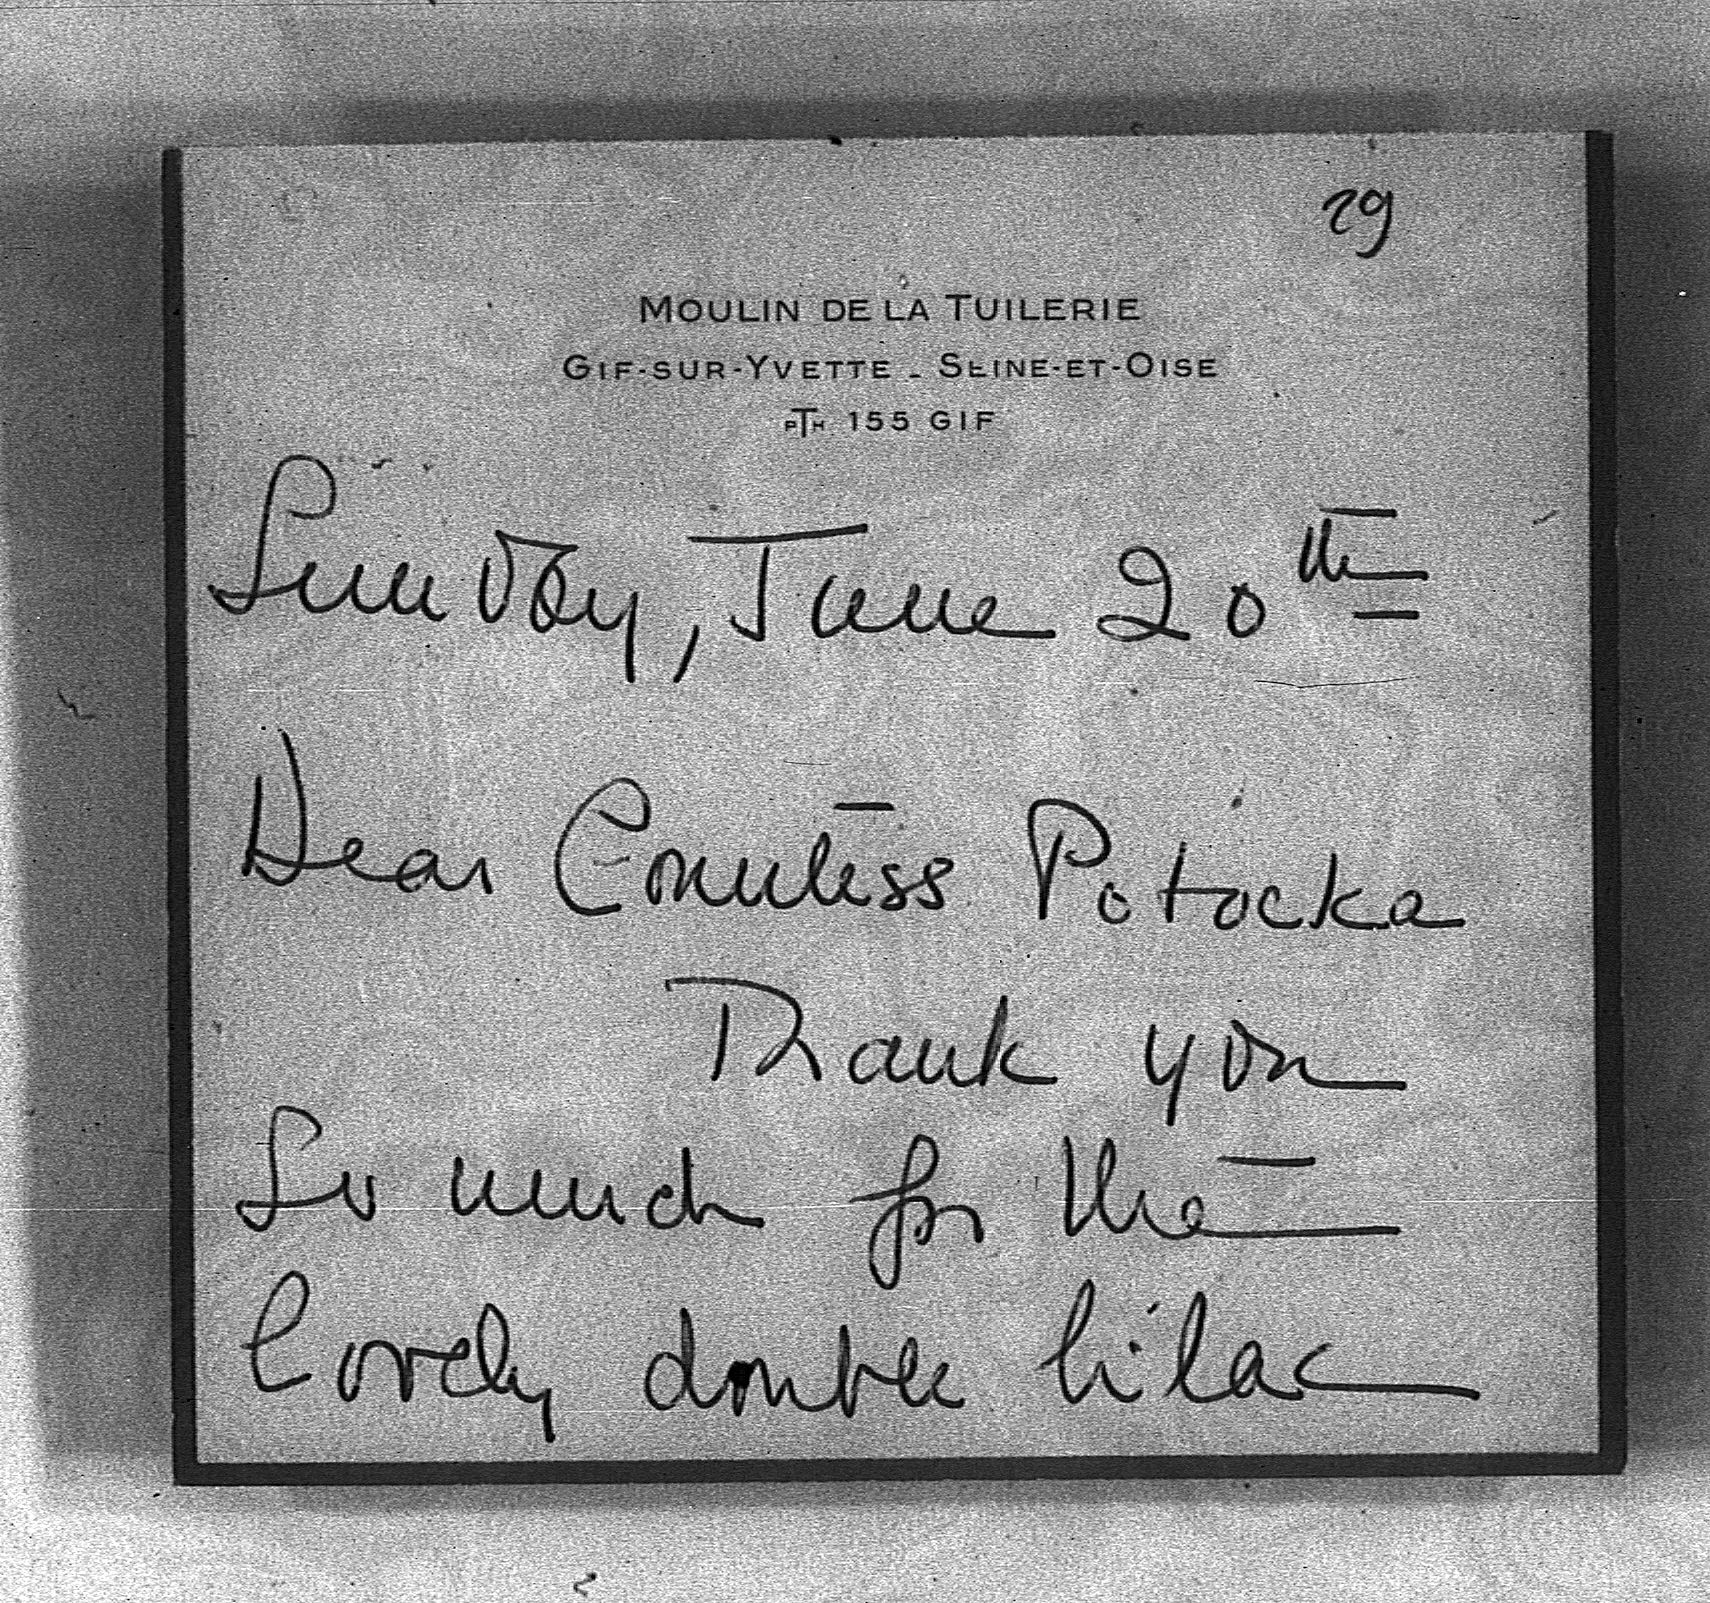 29
MOULIN DE LA TUILERIE
GIF-SUR-YVETTE - SEINE-ET-OISE
PTH 155 GIF
Sunday, June 20th
Dear Countess Potocka
Thank you
So much for the
lovely double lilac